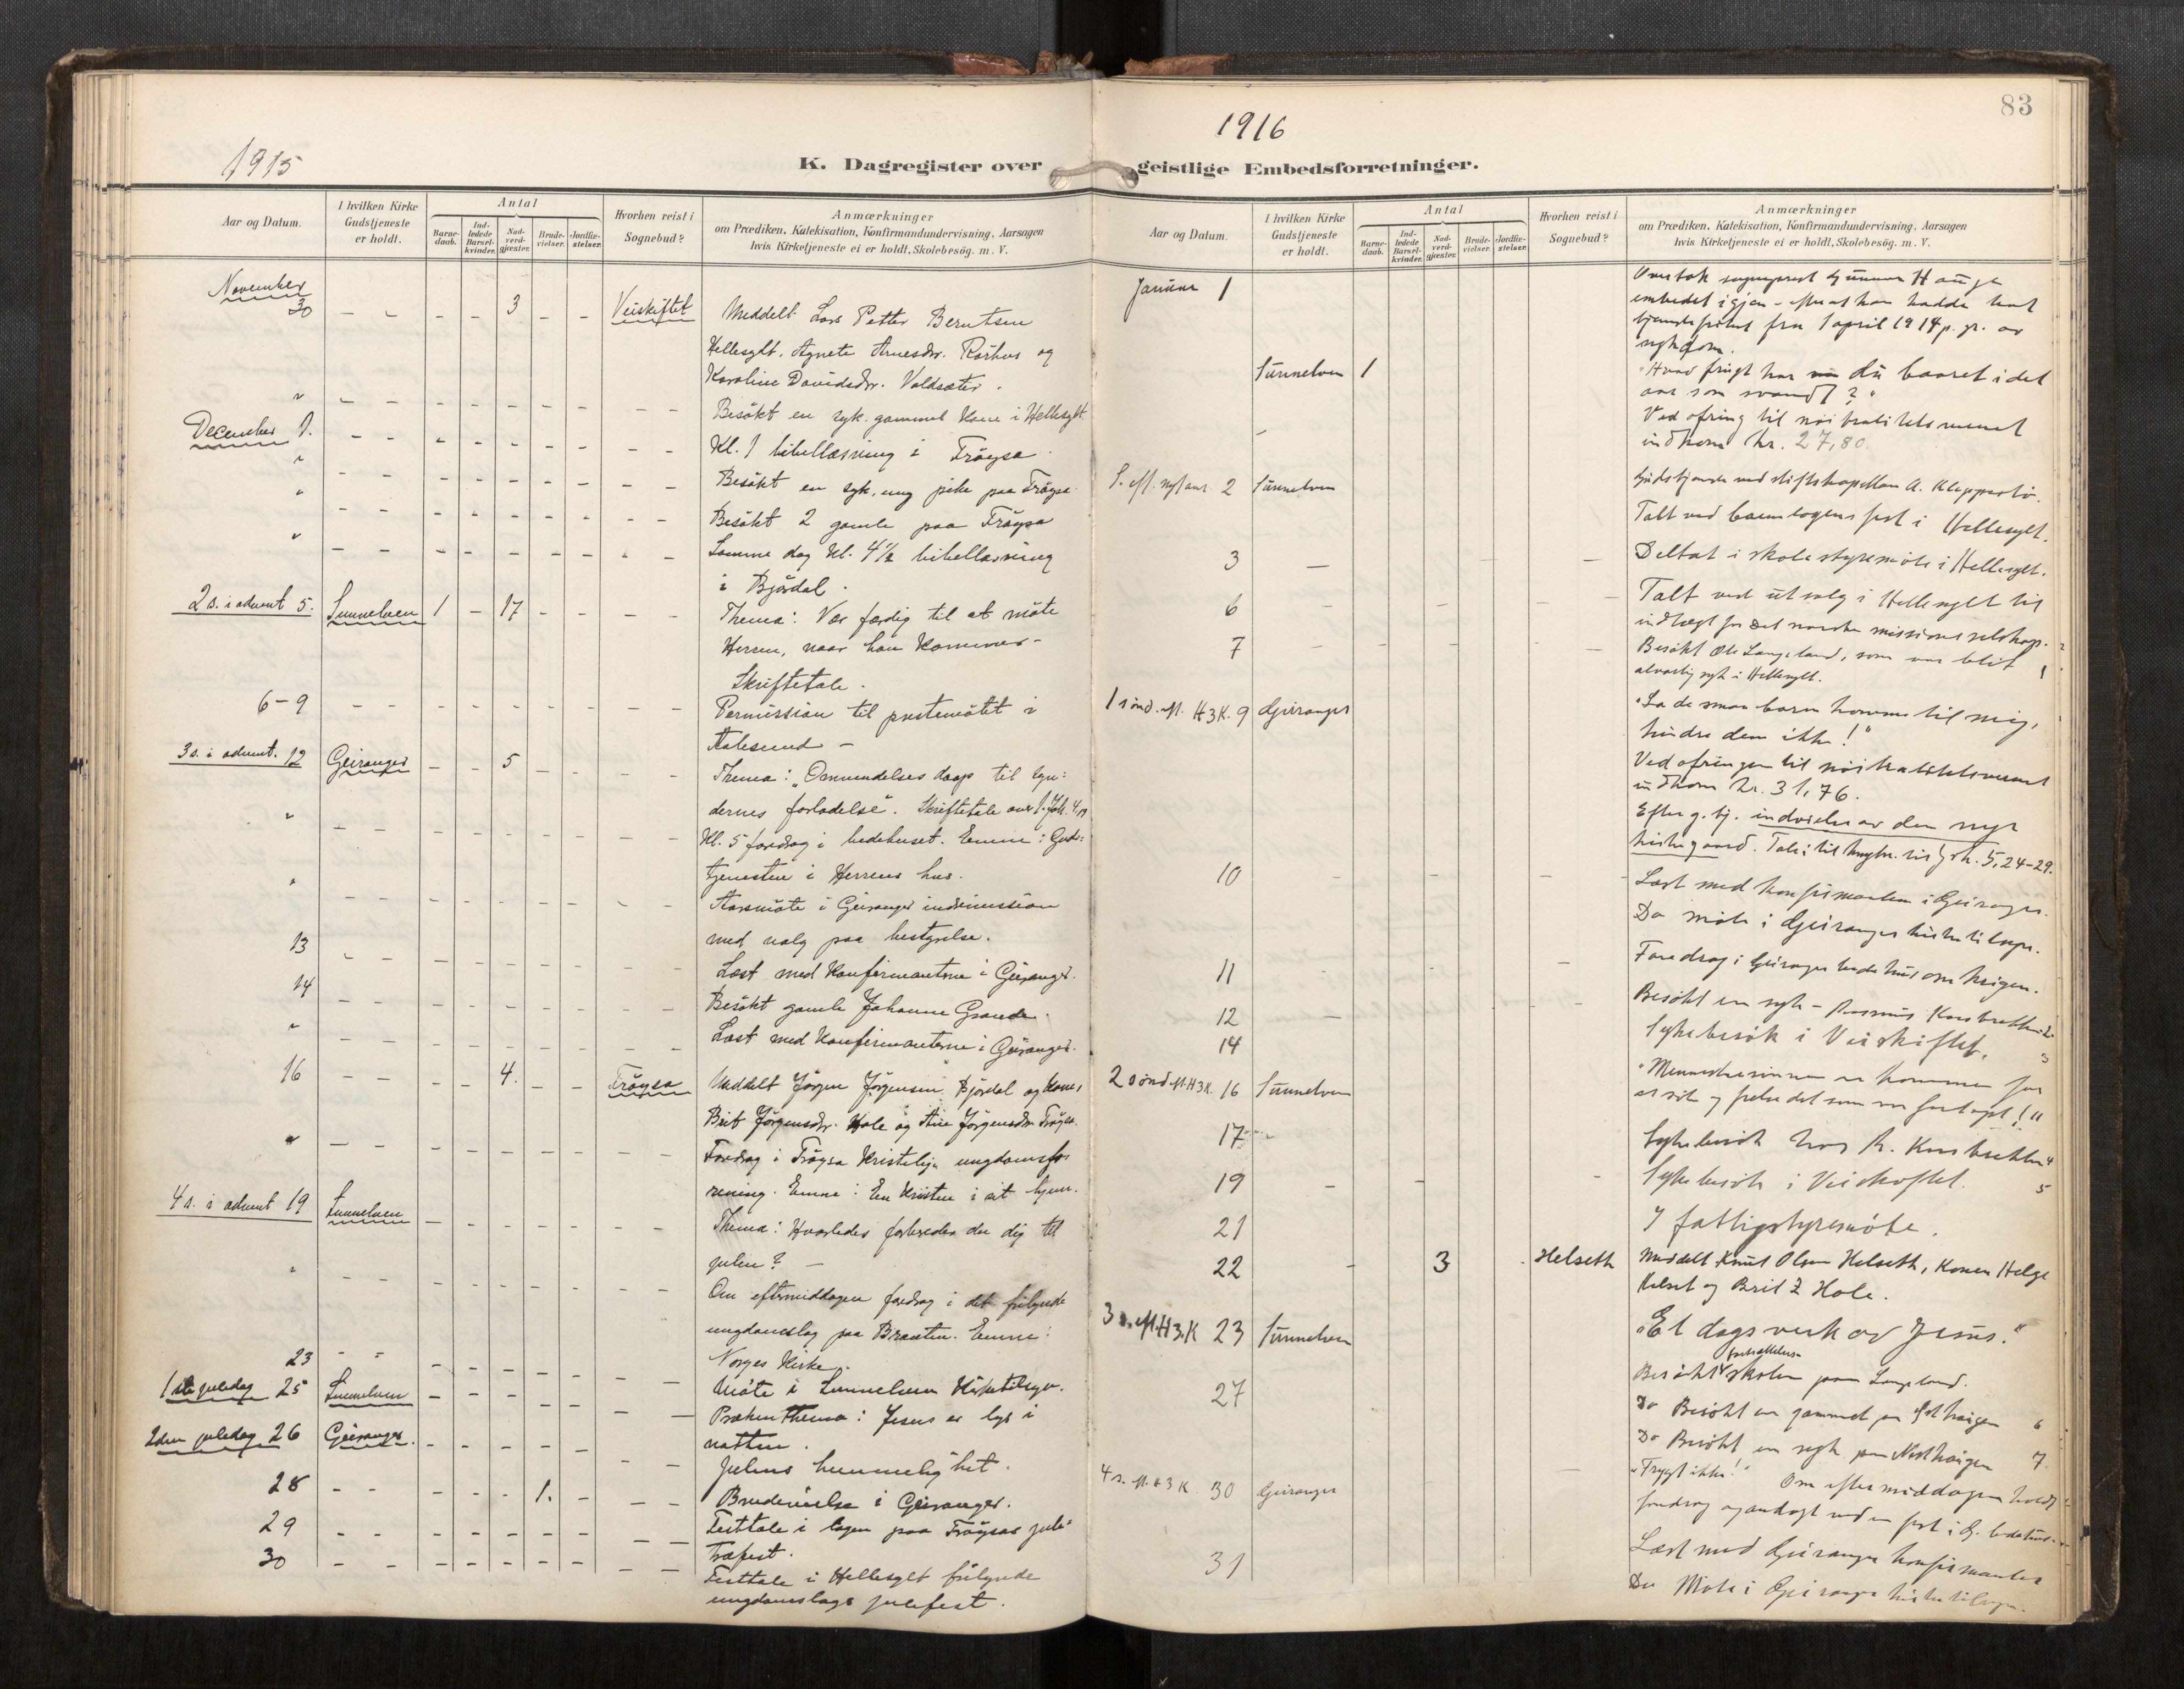 83
1915
1916
K. Dagregister over geistlige Embedsforretninger.
Aar og Datum.
I hvilken Kirke Gudstjeneste er holdt.
Antal
Barne-daab.
Ind-ledede Barsel-kvinder.
Nad-verd-gjæster.
Brude-vielser.
Jordfæ-stelser.
Hvorhen reist i Sognebud?
Anmærkninger
om Prædiken, Katekisation, Konfirmandundervisning, Aarsagen
hvis Kirketjeneste ei er holdt, Skolebesög. m. V.
November
30 - - - - 3 - - Veiskiftet Meddelt Lars Petter Berntsen
Hellesylt. Agnete Arnesdr. Rørhus og
Karoline Davidsdr. Valdsæter.
" Besökt en syk. gammel kone i Hellesylt
December 1. Kl. 1 bibellæsning i Fröysa.
" Besökt en syk. ung pike paa Fröysa.
" Besökt 2 gamle paa Fröysa
" Samme dag kl. 4½ bibellæsning
i Bjørdal.
2 s. i advent 5. Sunnelven 1 - 17 - - - - Thema: Vær færdig til at möte
Herren, naar han kommer -
Skriftetale.
6-9 Permission til prestemötet i
Aalesund -
3 s. i advent. 12 Geiranger - - 5 - - - - Thema: "Omvendelses daap til syn:
dernes forladelse". Skriftetale over 1. Joh. 4,19
" Kl. 5 foredrag i bedehuset. Emne: Guds:
tjenesten i Herrens hus.
" Aarsmöte i Geiranger indremission
med valg paa bestyrelse.
13 Læst med konfirmanterne i Geiranger.
14 Besökt gamle Johanne Grande.
" Læst med konfirmanterne i Geiranger.
16 - - - - 4. - - Fröysa Meddelt Jörgen Jörgensen Björdal og kone,
Brit Jörgensdr. Hole og Ane Jörgensdr. Fröysa.
" Foredrag i Fröysa kristelige ungdomsfor
ening. Emne: En kristen i sit hjem.
4 s. i advent 19 Sunnelven Thema: Hvorledes forbereder du dig til
julen? -
" Om eftermiddagen foredrag i det frilynde
ungdomslag paa Bruaiten. Emne:
Norges Kirke.
23 Möte i Sunnelven Kirketilsyn.
1ste juledag 25 Sunnelven Præken Thema: Jesus er lys i
natten.
2den juledag 26 Geiranger. Julens hemmelighet.
28 - - - - - 1. - Brudevielse i Geiranger.
29 Festtale i logen paa Fröysas jule-
træfest.
30 Festtale i Hellesylt frilynde
ungdomslags julefest.
Aar og Datum.
I hvilken Kirke Gudstjeneste er holdt.
Antal
Barne-daab.
Ind-ledede Barsel-kvinder.
Nad-verd-gjæster.
Brude-vielser.
Jordfæ-stelser.
Hvorhen reist i Sognebud?
Anmærkninger
om Prædiken, Katekisation, Konfirmandundervisning, Aarsagen
hvis Kirketjeneste ei er holdt, Skolebesög. m. V.
Januar 1 Overtok sogneprest Gunnar Hauge
embedet igjen - efterat han hadde hat
tjenestefrihet fra 1 april 1914 p. gr. av
sykdom.
Sunnelven 1 "Hvad frugt har du baaret i det
aar som svandt?"
Ved ofring til nöitralitetsvernet
indkom kr. 27,80.
S. eft. nytaar 2 Sunnelven Gudstjeneste ved stiftskapellan A. Klepperö.
Talt ved barnelogens fest i Hellesylt.
3 Deltat i skolestyremöte i Hellesylt.
6 Talt ved utsalg i Hellesylt til
indtægt for det norske missionsselskap.
7 Besökt Ole Langeland, som var blit 1
alvorlig syk i Hellesylt.
1 sönd. eft. H3K. 9 Geiranger "La de smaa barn komme til mig,
hindre dem ikke!"
Ved ofringen til nöitralitetsvernet
indkom kr. 31,76.
Efter g. tj. indvielse av den nye
kirkegaard. Joh. 5,24-29.
10 Læst med konfirmanten i Geiranger.
Do möte i Geiranger kirketilsyn.
11 Foredrag i Geiranger bedehus om krigen.
12 Besökt en syk - Rasmus 2
14 Sykebesök i Veiskiftet. 3
2 sönd. eft. H3K. 16 Sunnelven "Menneskesönnen er kommen for
at söke og frelse det som var fortapt!"
17 Sykebesök hos R. 4
19 Sykebesök i Veiskiftet. 5
21 I fattigstyremöte.
22 3 Helseth Meddelt Knut Olsen Helseth, konen Helge
Helset og Brit Z Hole.
3 s. eft. H3.K 23 Sunnelven "Et dagsverk av Jesus."
27 Besökt fortsættelses skolen paa Langeland.
Do Besökt en gammel paa 6
Do Besökt en syk paa 7.
4 s. eft. H3K. 30 Geiranger "Frygt ikke!" Om eftermiddagen holdt
foredrag og andagt ved en fest i G. bedehus.
31 Læst med Geiranger konfirmanter
Do Möte i Geiranger kirketilsyn.